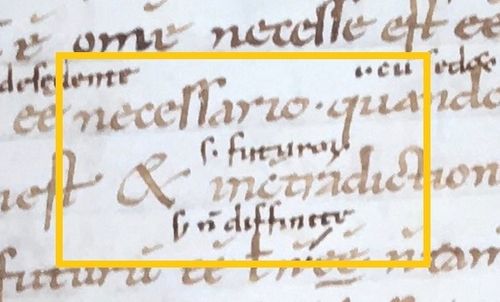 ē omē necesse est eē
desedente cū sedeo
eē necessario · quando
s. futuroꝝ
nest & inctradiction
s; n̄ diffinite
futurū eē n̄tam